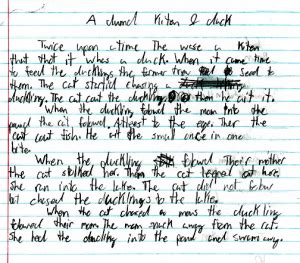 A kitan & duck
Twice upon a time The wase a kiten
that that it whas a duck. When it came time
to feed the ducklings the farmer seed to
them. The cat startid chasing a
duckling. The cat caut the duckling then he eat it.
When the duckling folowd the mom into the
the cat folowd. At the ege. Ther the
cat caut fish. He eat the small once in one
bite.
When the duckling folowd Their mother
the cat stolked her. Then the cat here.
She run into the lake. The cat did not folow
chased the ducklings to the lake.
When the cat chased mows the duckling
folowed their mom The mom suck away from the cat.
She leed the duckling into the pond and swam away.